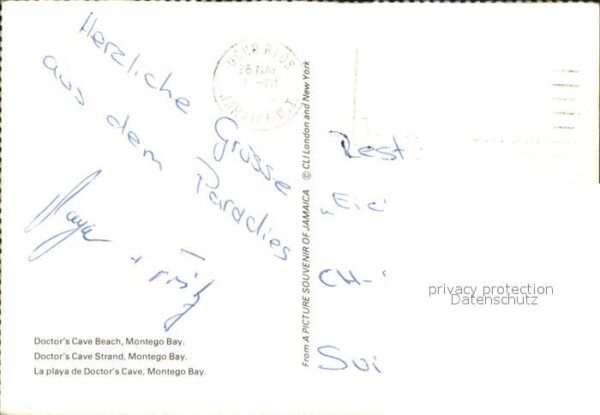 Herzliche Grüsse
aus dem Paradies
+ Fritz
Doctor's Cave Beach, Montego Bay.
Doctor's Cave Strand, Montego Bay.
La playa de Doctor's Cave, Montego Bay.
From A PICTURE SOUVENIR OF JAMAICA © CLI London and New York
OCHO RIOS
JAMAICA W.I.
Rest.
CH-
privacy protection
Datenschutz